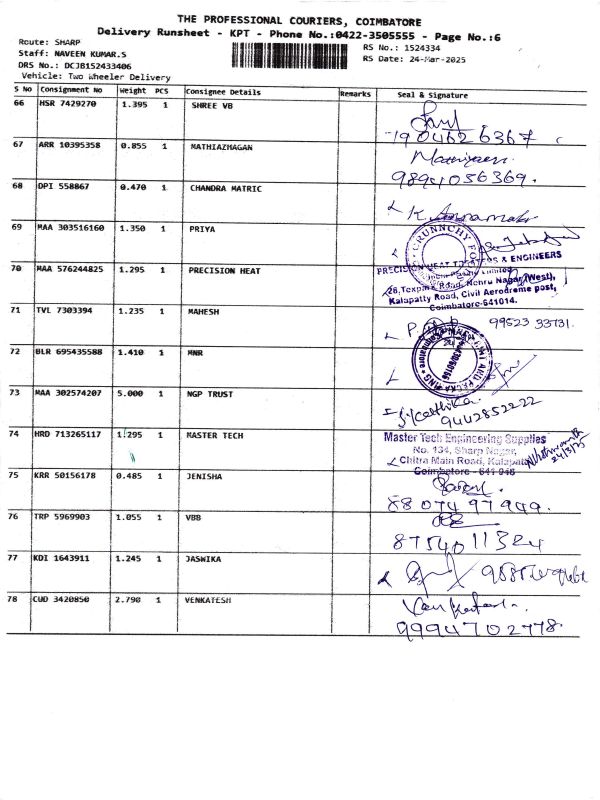 THE PROFESSIONAL COURIERS, COIMBATORE
Delivery Runsheet - KPT - Phone No.:0422-3505555 - Page No.:6
Route: SHARP
RS No.: 1524334
Staff: NAVEEN KUMAR.S
RS Date: 24-Mar-2025
DRS No.: DCJB152433406
Vehicle: Two Wheeler Delivery
S No Consignment No Weight PCS Consignee Details Remarks Seal & Signature
66 HSR 7429270 1.395 1 SHREE VB
7904626367
67 ARR 10395358 0.855 1 MATHIAZHAGAN
9894056369.
68 DPI 558867 0.470 1 CHANDRA MATRIC
69 MAA 303516160 1.350 1 PRIYA
CRUNNCHY
70 MAA 576244825 1.295 1 PRECISION HEAT
PRECISION HEAT & ENGINEERS
Private Limited
26, Texpark Road, Nehru Nagar (West),
Kalapatty Road, Civil Aerodrome post,
Coimbatore-641014.
71 TVL 7303394 1.235 1 MAHESH
99523 33731.
72 BLR 695435588 1.410 1 MNR
73 MAA 302574207 5.000 1 NGP TRUST
9442852222
74 HRD 713265117 1.295 1 MASTER TECH
Master Tech Engineering Supplies
No. 134, Sharp Nagar,
Chitra Main Road, Kalapatti
Coimbatore - 641 048
24/3/25
75 KRR 50156178 0.485 1 JENISHA
88074 97949.
76 TRP 5969903 1.055 1 VBB
8754011324
77 KDI 1643911 1.245 1 JASWIKA
78 CUD 3420850 2.790 1 VENKATESH
9994702778